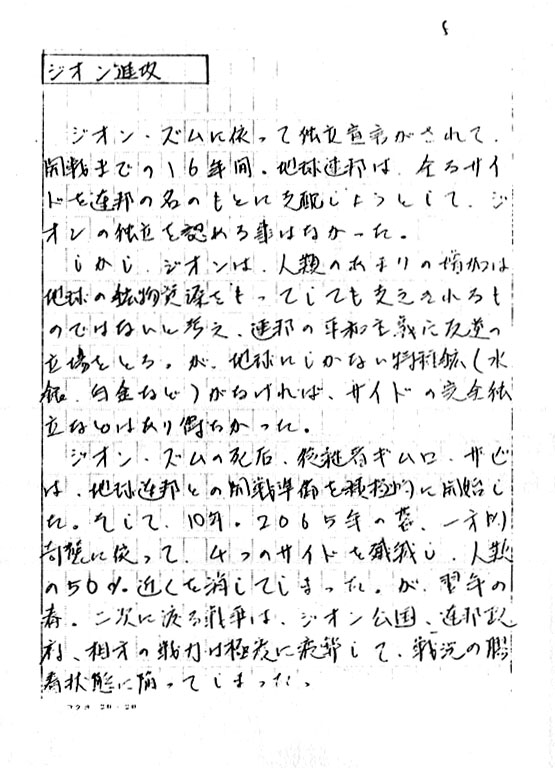 8
ジオン進攻
ジオン・ズムに依って独立宣言がされて、
開戦までの16年間。地球連邦は、全るサイ
ドを連邦の名のもとに支配しようとして、ジ
オンの独立を認める事はなかった。
しかし、ジオンは、人類のあまりの増加は
地球の鉱物資源をもってしても支えきれるも
のではないと考え、連邦の平和主義に反逆の
立場をとる。が、地球にしかない特種鉱(水
銀、白金など)がなければ、サイドの完全独
立などはあり得なかった。
ジオン・ズムの死后、後継者ギムロ・ザビ
は、地球連邦との開戦準備を積極的に開始し
た。そして、10年。2065年の暮、一方的
奇襲に依って、4つのサイドを殲滅し、人類
の50%近くを消してしまった。が、翌年の
春。二次に渡る戦争は、ジオン公国、連邦政
府、相方の戦力は極度に疲弊して、戦況の膠
着状態に陥ってしまった。
コクヨ 20×20